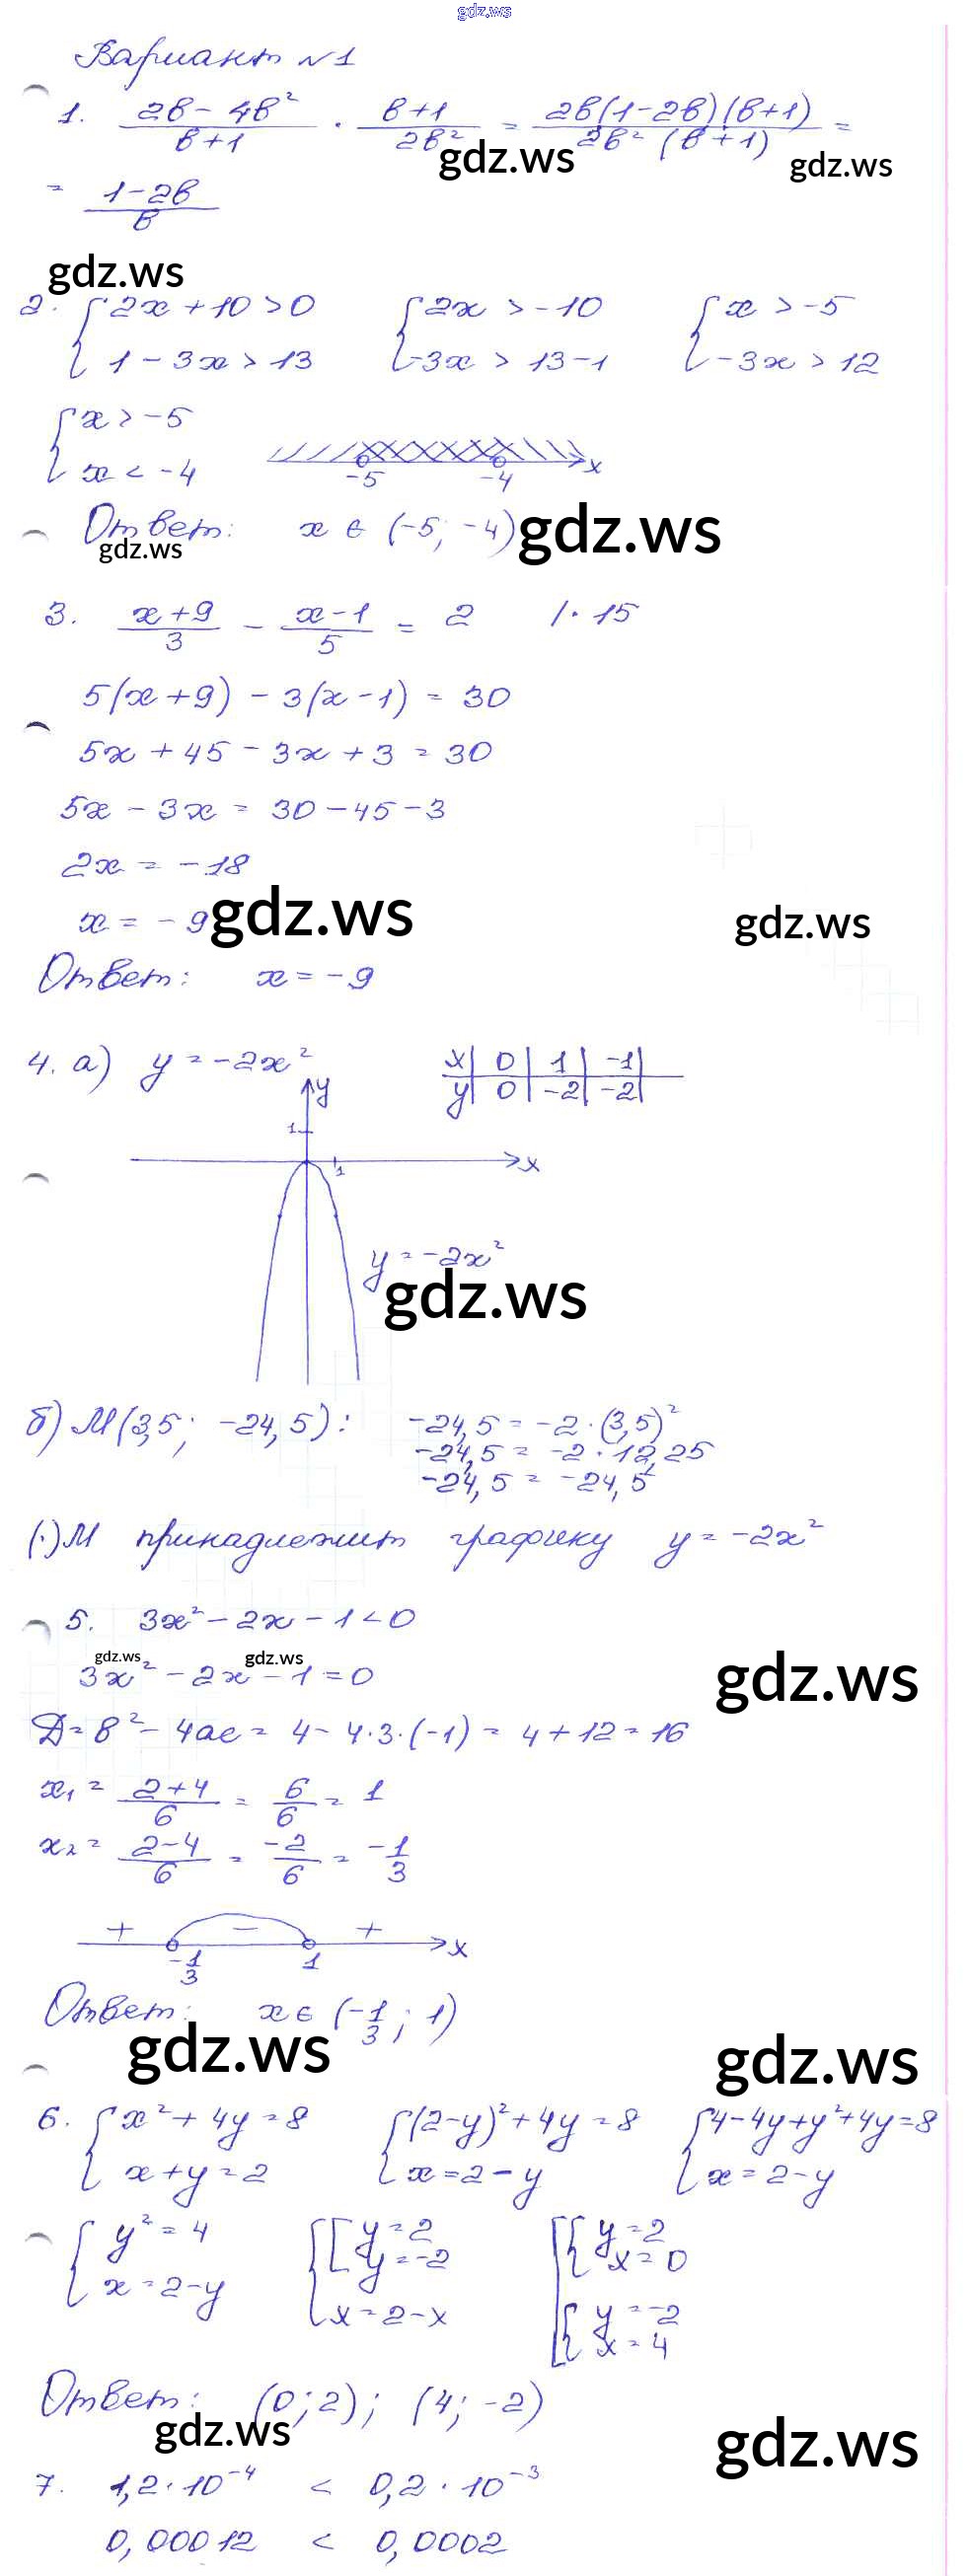 gdz.ws
Вариант №1
1. (2b - 4b²)/(b+1) · (b+1)/(2b²) = (2b(1-2b)(b+1))/(2b²(b+1)) =
gdz.ws gdz.ws
= (1-2b)/b
gdz.ws
2. { 2x+10>0 { 2x > -10 { x > -5
1 - 3x > 13 -3x > 13-1 -3x > 12
{ x > -5
x < -4 -5 -4 x
Ответ: x ∈ (-5; -4) gdz.ws
gdz.ws
3. (x+9)/3 - (x-1)/5 = 2 /·15
5(x+9) - 3(x-1) = 30
5x + 45 - 3x + 3 = 30
5x - 3x = 30 - 45 - 3
2x = -18
x = -9 gdz.ws gdz.ws
Ответ: x = -9
4. а) y = -2x² x | 0 | 1 | -1 |
y | 0 | -2 | -2 |
y
1
1 x
y = -2x²
gdz.ws
б) M(3,5; -24,5): -24,5 = -2·(3,5)²
-24,5 = -2·12,25
-24,5 = -24,5
(·)M принадлежит графику y = -2x²
5. 3x² - 2x - 1 < 0
gdz.ws gdz.ws gdz.ws
3x² - 2x - 1 = 0
Д = b² - 4ac = 4 - 4·3·(-1) = 4 + 12 = 16
x₁ = (2+4)/6 = 6/6 = 1
x₂ = (2-4)/6 = -2/6 = -1/3
+ - + x
-1/3 1
Ответ: x ∈ (-1/3; 1)
gdz.ws gdz.ws
6. { x² + 4y = 8 { (2-y)² + 4y = 8 { 4-4y+y²+4y=8
x + y = 2 x = 2-y x = 2-y
{ y² = 4 { [ y = 2 [ { y = 2
y = -2 x = 0
x = 2-y x = 2-x { y = -2
x = 4
Ответ: (0; 2); (4; -2)
gdz.ws gdz.ws
7. 1,2·10⁻⁴ < 0,2·10⁻³
0,00012 < 0,0002